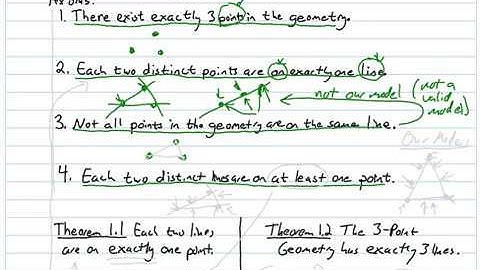 Axioms:
1. There exist exactly 3 points in the geometry.
2. Each two distinct points are on exactly one line.
not our model (not a valid model)
3. Not all points in the geometry are on the same line.
Our Model
4. Each two distinct lines are on at least one point.
Theorem 1.1 Each two lines
are on exactly one point.
Theorem 1.2 The 3-Point
Geometry has exactly 3 lines.